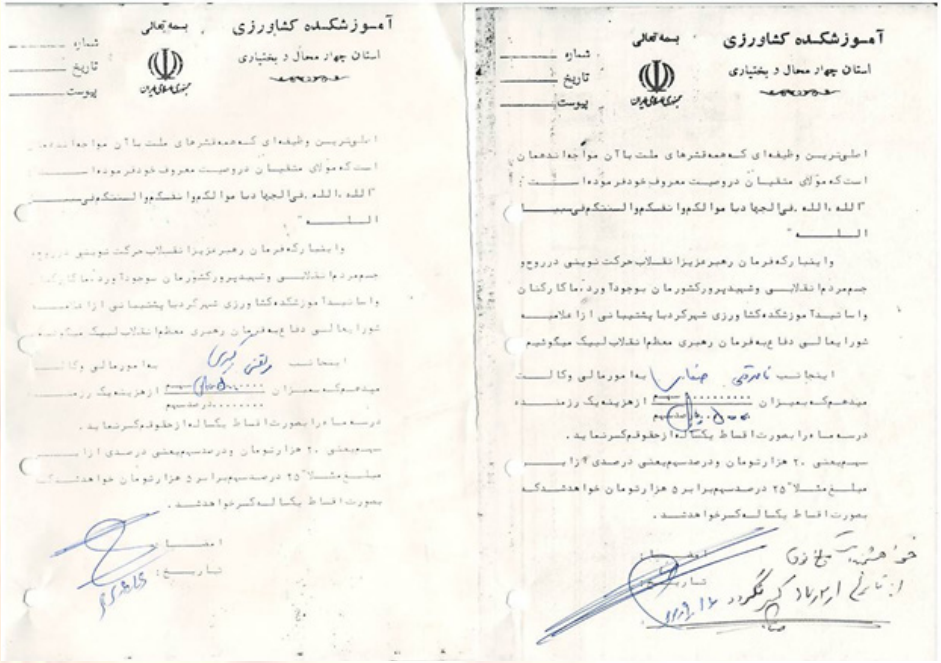 آموزشکده کشاورزی
استان چهار محال و بختیاری
بسمه تعالی
جمهوری اسلامی ایران
شماره
تاریخ
پیوست
اصلی‌ترین وظیفه‌ای که همه قشرهای ملت با آن مواجه‌اند همان
است که مولای متقیان در وصیت معروف خود فرموده است :
"الله ، الله ، فی الجهاد با موالکم وانفسکم والسنتکم فی سبیل
الله "
و اینبار که فرمان رهبر عزیز انقلاب حرکت نوینی در روح و
جسم مردم انقلابی و شهید پرور کشورمان بوجود آورد، ما کارکنان
و اساتید آموزشکده کشاورزی شهرکرد با پشتیبانی از اعلامیه
شورایعالی دفاع به فرمان رهبری معظم انقلاب لبیک میگوئیم
اینجانب به امور مالی وکالت
میدهم که بمیزان سهم از هزینه یک رزمنده
درصد سهم
در سه ماه را بصورت اقساط یکساله از حقوقم کسر نماید .
سهم یعنی ۲۰ هزار تومان و درصد سهم یعنی درصدی از این
مبلغ مثلا" ۲۵ درصد سهم برابر ۵ هزار تومان خواهد شد که
بصورت اقساط یکساله کسر خواهد شد .
امضاء :
تاریخ :
آموزشکده کشاورزی
استان چهار محال و بختیاری
بسمه تعالی
جمهوری اسلامی ایران
شماره
تاریخ
پیوست
اصلی‌ترین وظیفه‌ای که همه قشرهای ملت با آن مواجه‌اند همان
است که مولای متقیان در وصیت معروف خود فرموده است :
"الله ، الله ، فی الجهاد با موالکم وانفسکم والسنتکم فی
الله "
و اینبار که فرمان رهبر عزیز انقلاب حرکت نوینی در روح و
جسم مردم انقلابی و شهید پرور کشورمان بوجود آورد، ما کارکنان
و اساتید آموزشکده کشاورزی شهرکرد با پشتیبانی از اعلامیه
شورایعالی دفاع به فرمان رهبری معظم انقلاب لبیک میگوئیم
اینجانب به امور مالی وکالت
میدهم که بمیزان سهم از هزینه یک رزمنده
درصد سهم
در سه ماه را بصورت اقساط یکساله از حقوقم کسر نماید .
سهم یعنی ۲۰ هزار تومان و درصد سهم یعنی درصدی از این
مبلغ مثلا" ۲۵ درصد سهم برابر ۵ هزار تومان خواهد شد که
بصورت اقساط یکساله کسر خواهد شد .
امضاء :
تاریخ :